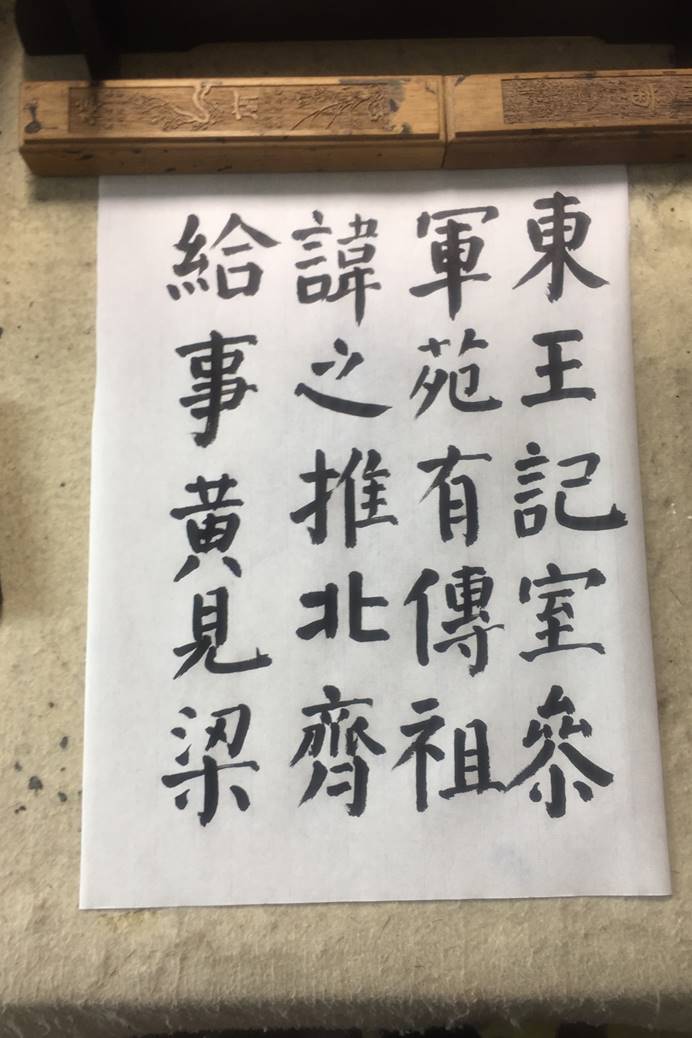 東王記室參
軍苑有傳祖
諱之推北齊
給事黄見梁